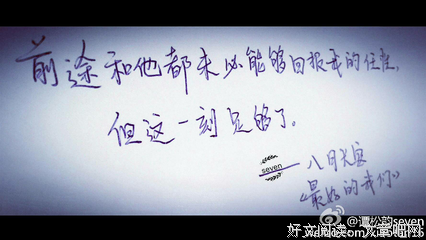 前途和他都未必能够回报我的任性，
但这一刻足够了。
seven
八月长安
《最好的我们》
@谭松韵seven
好文阅读-文章吧网